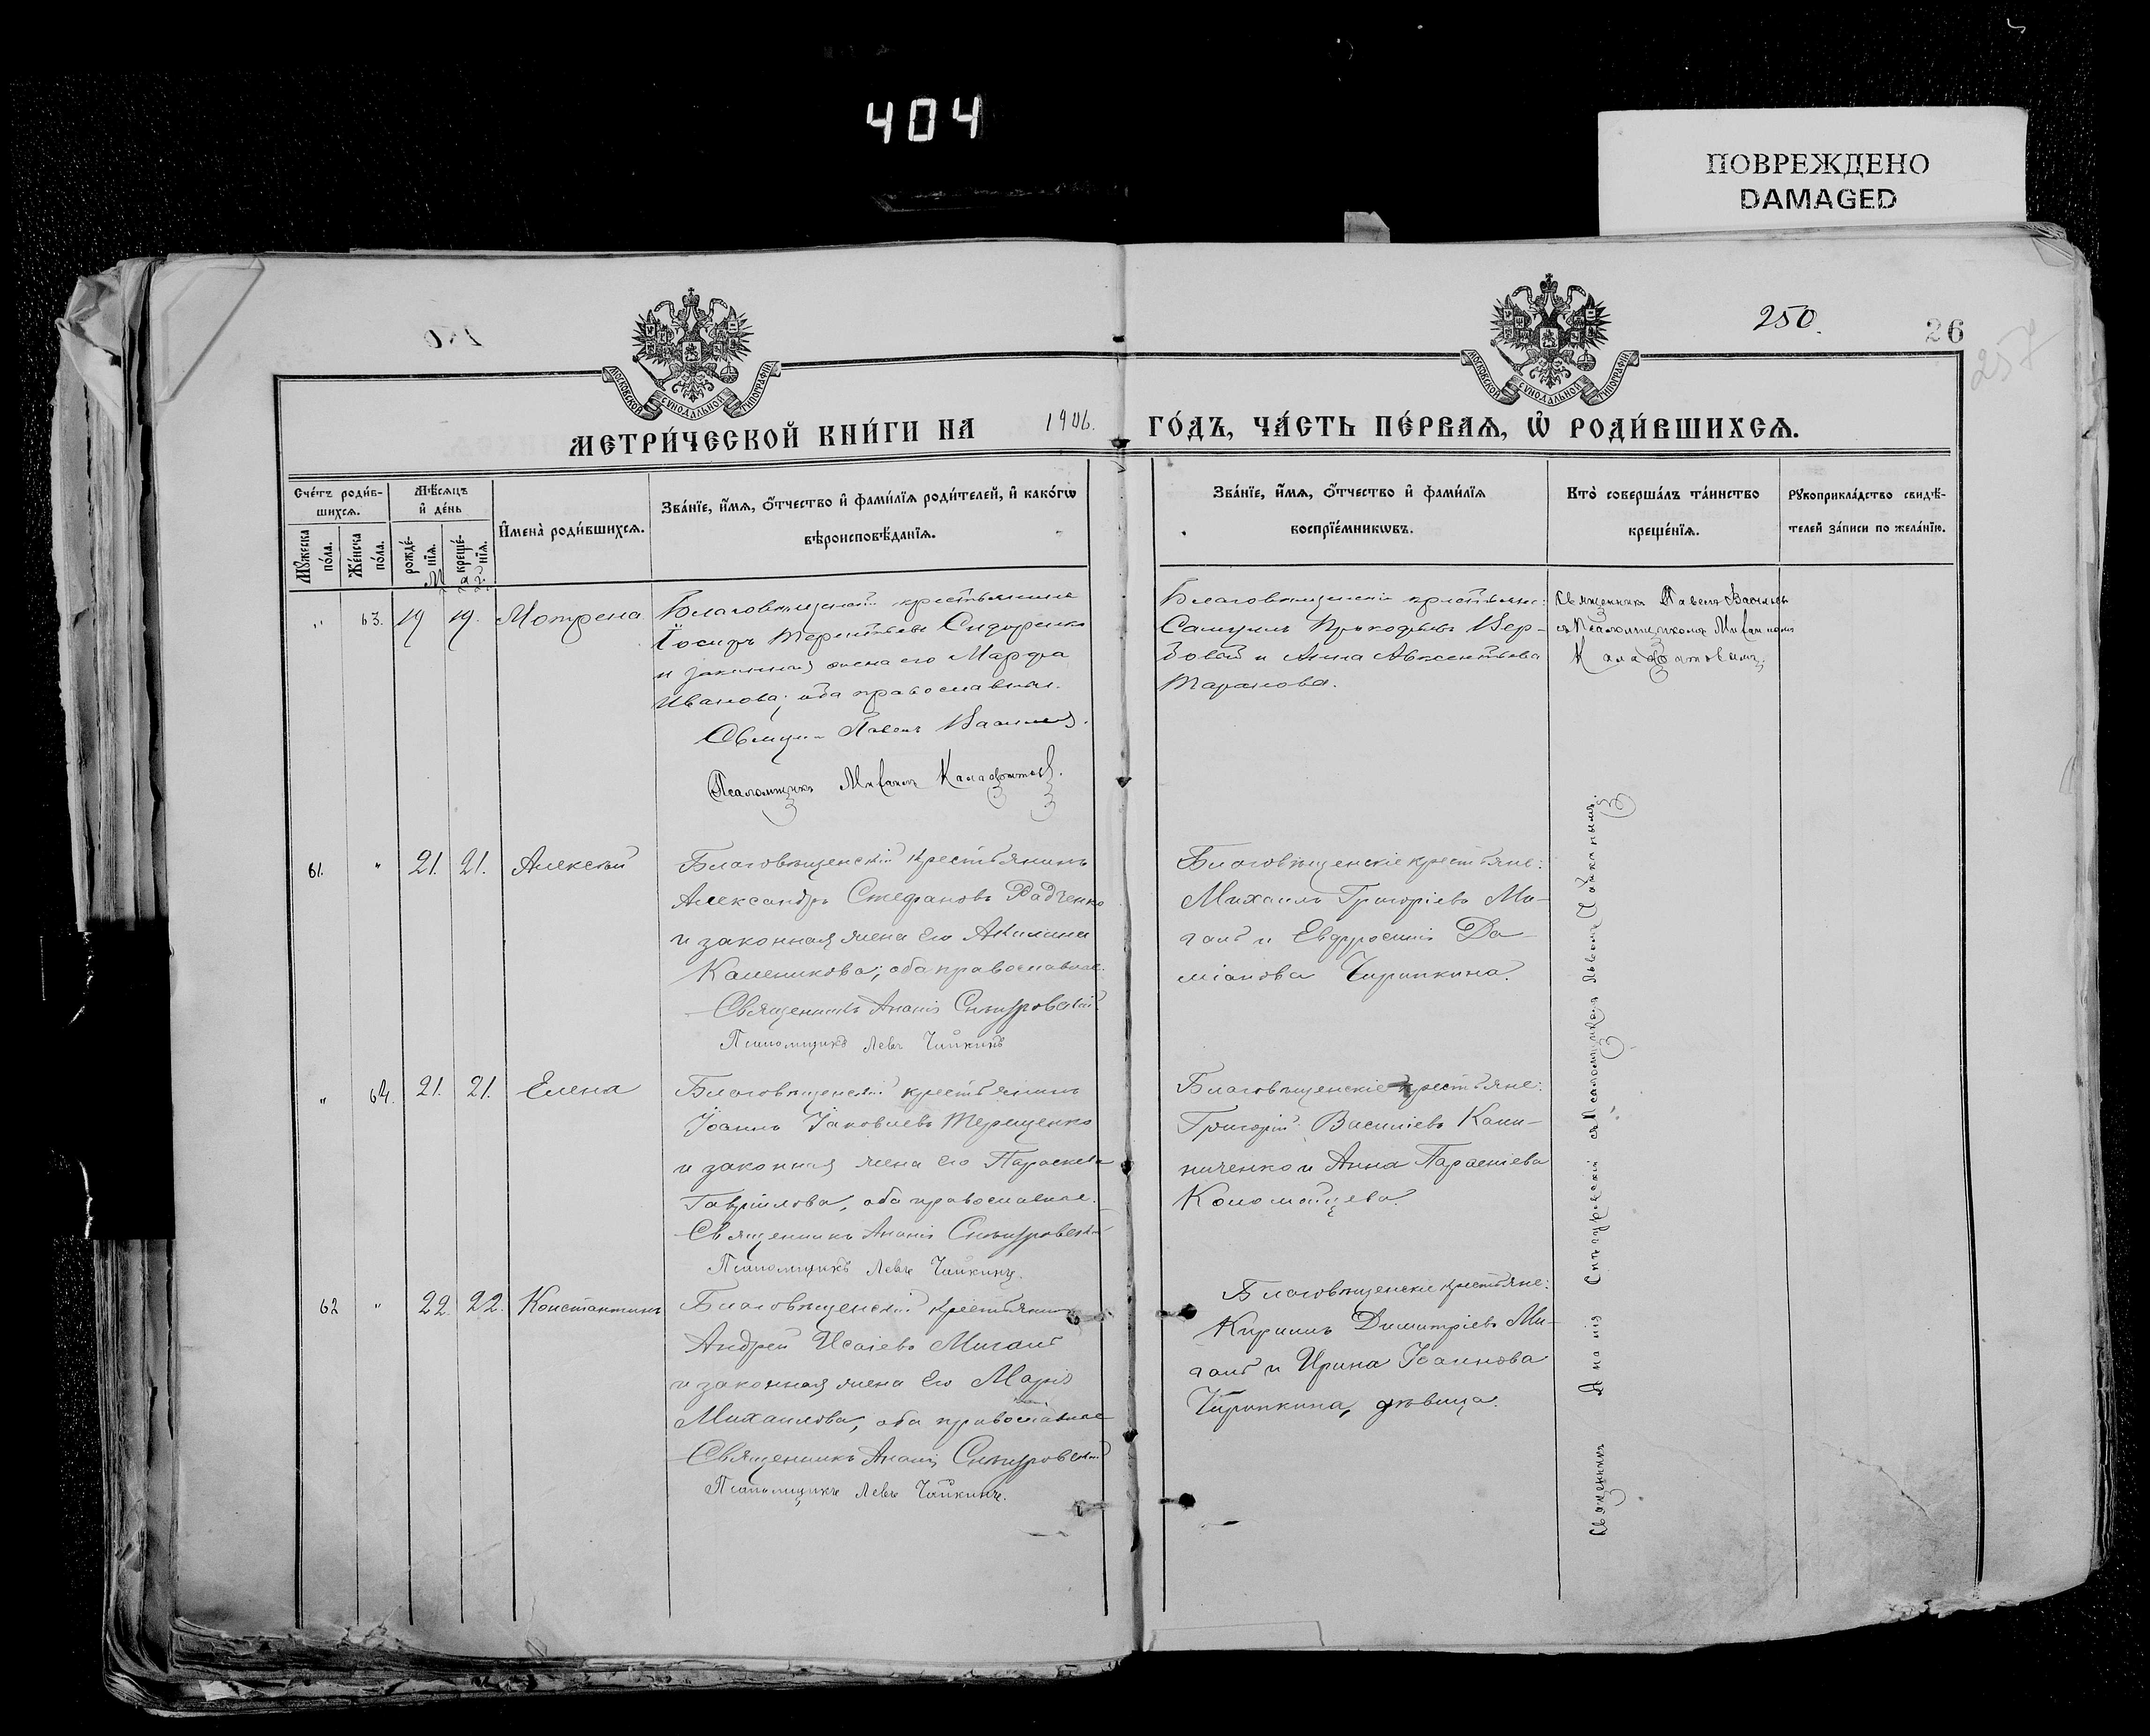 404
ПОВРЕЖДЕНО
DAMAGED
250.
26
257
МОСКОВСКОЙ СѴНОДАЛЬНОЙ ТИПОГРАФІИ
МОСКОВСКОЙ СѴНОДАЛЬНОЙ ТИПОГРАФІИ
МЕТРИ́ЧЕСКОЙ КНИ́ГИ НА 1906. ГО́ДЪ, ЧА́СТЬ ПЕ́РВАЯ, Ѡ҆ РОДИ́ВШИХСЯ.
Сче́тъ роди́в-
шихся.
Мꙋжеска по́ла.
Же́нска по́ла.
Мѣ́сяцъ
и҆ де́нь
рожде́-
нїя.
креще́-
нїя.
И҆мена̀ роди́вшихся.
Зва́нїе, и҆́мя, о҆́тчество и҆ фами́лїя роди́телей, и҆ како́гѡ
вѣроисповѣ́данїя.
Зва́нїе, и҆́мя, о҆́тчество и҆ фами́лїя
воспрїе́мникѡвъ.
Кто̀ соверша́лъ та́инство
креще́нїя.
Рꙋкоприкла́дство свидѣ́-
телей за́писи по жела́нїю.
Май
" 63. 19 19. Мотрена
Благовѣщенскій крестьянинъ
Іосифъ Терентьевъ Сидоренко
и законная жена его Марфа
Иванова; оба православные.
Священ. Павелъ Васильев.
Псаломщикъ Михаилъ Калафатовъ.
Благовѣщенскіе крестьяне:
Самуилъ Прокофьевъ Вер-
бовый и Анна Авксентьева
Таранова.
Священникъ Павелъ Васильев
съ Псаломщикомъ Михаиломъ
Калафатовымъ.
61. " 21. 21. Алексѣй
Благовѣщенскій крестьянинъ
Александръ Стефановъ Радченко
и законная жена его Акилина
Каленикова; оба православные.
Священникъ Ананія Снѣгуровскій
Псаломщикъ Левъ Чайкинъ
Благовѣщенскіе крестьяне:
Михаилъ Григоріевъ Ми-
галь и Евфросинія Да-
міанова Чирипкина.
" 64. 21. 21. Елена
Благовѣщенскій крестьянинъ
Іоаннъ Іаковлевъ Терещенко
и законная жена его Параскева
Гавріилова, оба православные.
Священникъ Ананія Снѣгуровскій
Псаломщикъ Левъ Чайкинъ.
Благовѣщенскіе крестьяне:
Григорій Василіевъ Кали-
ниченко и Анна
Коломойцева.
62 " 22. 22. Константинъ
Благовѣщенскій крестьянинъ
Андрей Исаіевъ Мигаль
и законная жена его Марія
Михаилова, оба православные
Священникъ Ананія Снѣгуровскій
Псаломщикъ Левъ Чайкинъ.
Благовѣщенскіе крестьяне:
Кириллъ Димитріевъ Ми-
галь и Ирина Іоаннова
Чирипкина, дѣвица.
Священникъ Ананія Снѣгуровскій съ Псаломщикомъ Львомъ Чайкинымъ.